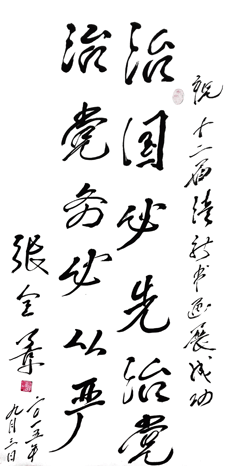 祝十二届书画展成功
治国必先治党
治党务必从严
张全景
二〇一五年
九月三日